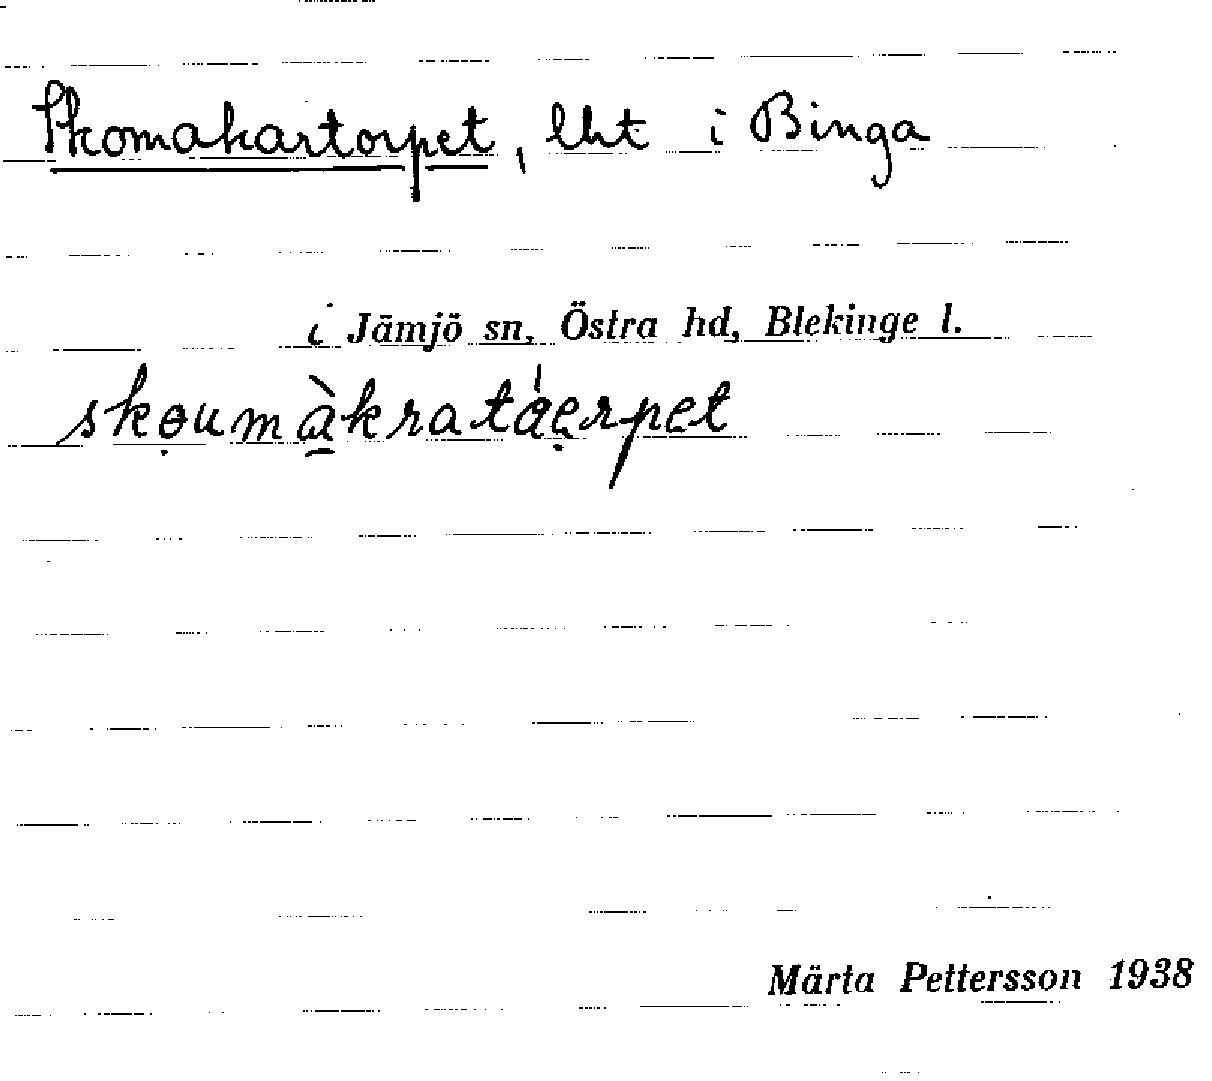 Skomakartorpet, lht i Binga
i Jämjö sn, Östra hd, Blekinge l.
skɵ̣umà̱kratáẹrpet
Märta Pettersson 1938